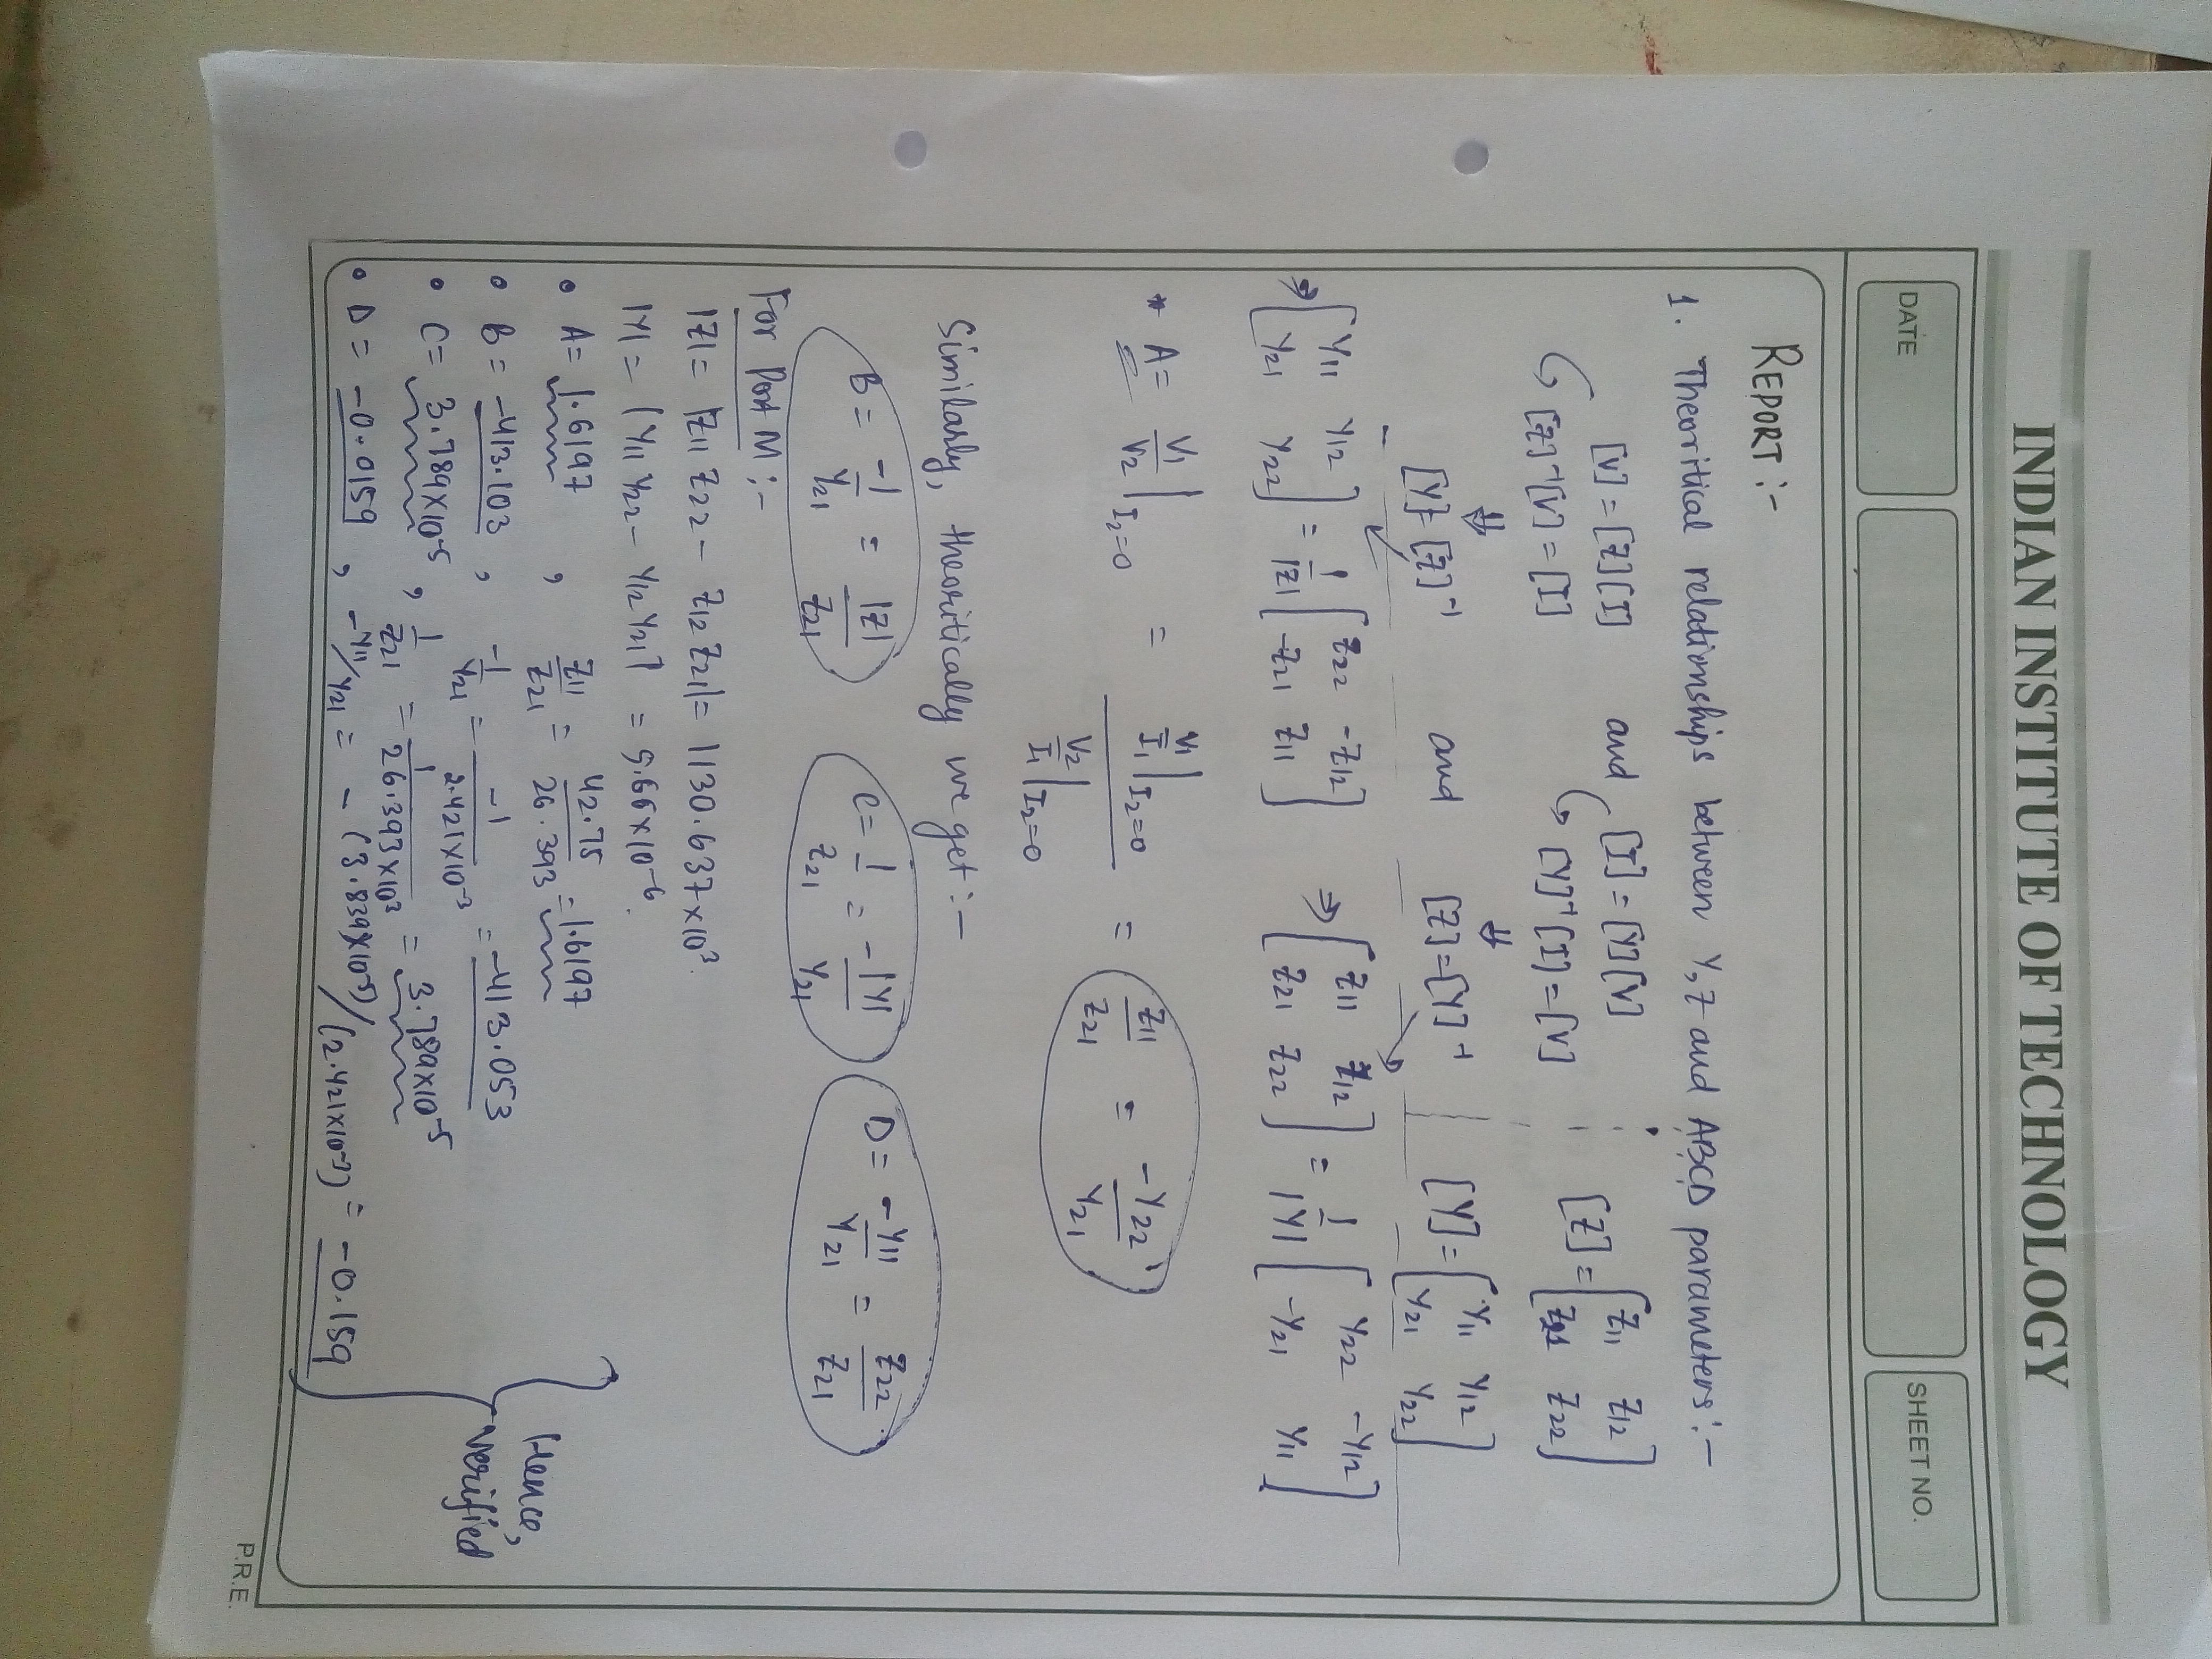 INDIAN INSTITUTE OF TECHNOLOGY
DATE
SHEET NO.
REPORT :-
1. Theoritical relationships between Y, Z and ABCD parameters :-
[V] = [Z][I] and [I] = [Y][V] [Z] = [Z11 Z12
[Z]⁻¹[V] = [I] [Y]⁻¹[I] = [V] Z21 Z22]
⇓ ⇓
[Y] = [Z]⁻¹ and [Z] = [Y]⁻¹ [Y] = [Y11 Y12
Y21 Y22]
⇒ [Y11 Y12 = 1/|Z| [Z22 -Z12 ⇒ [Z11 Z12 = 1/|Y| [Y22 -Y12
Y21 Y22] -Z21 Z11] Z21 Z22] -Y21 Y11]
* A = V1/V2 | I2=0 = (V1/I1 | I2=0) / (V2/I1 | I2=0) = Z11/Z21 = -Y22/Y21
Similarly, theoritically we get :-
B = -1/Y21 = |Z|/Z21 C = 1/Z21 = -|Y|/Y21 D = -Y11/Y21 = Z22/Z21
For Port M :-
|Z| = |Z11 Z22 - Z12 Z21| = 1130.637×10³.
|Y| = |Y11 Y22 - Y12 Y21| = 9.66×10⁻⁶.
• A = 1.6197 , Z11/Z21 = 42.75/26.393 = 1.6197
• B = -413.103 , -1/Y21 = -1/2.421×10⁻³ = -413.053
• C = 3.789×10⁻⁵ , 1/Z21 = 1/26.393×10³ = 3.789×10⁻⁵
• D = -0.0159 , -Y11/Y21 = -(3.839×10⁻⁵)/(2.421×10⁻³) = -0.159
Hence,
verified
P.R.E.